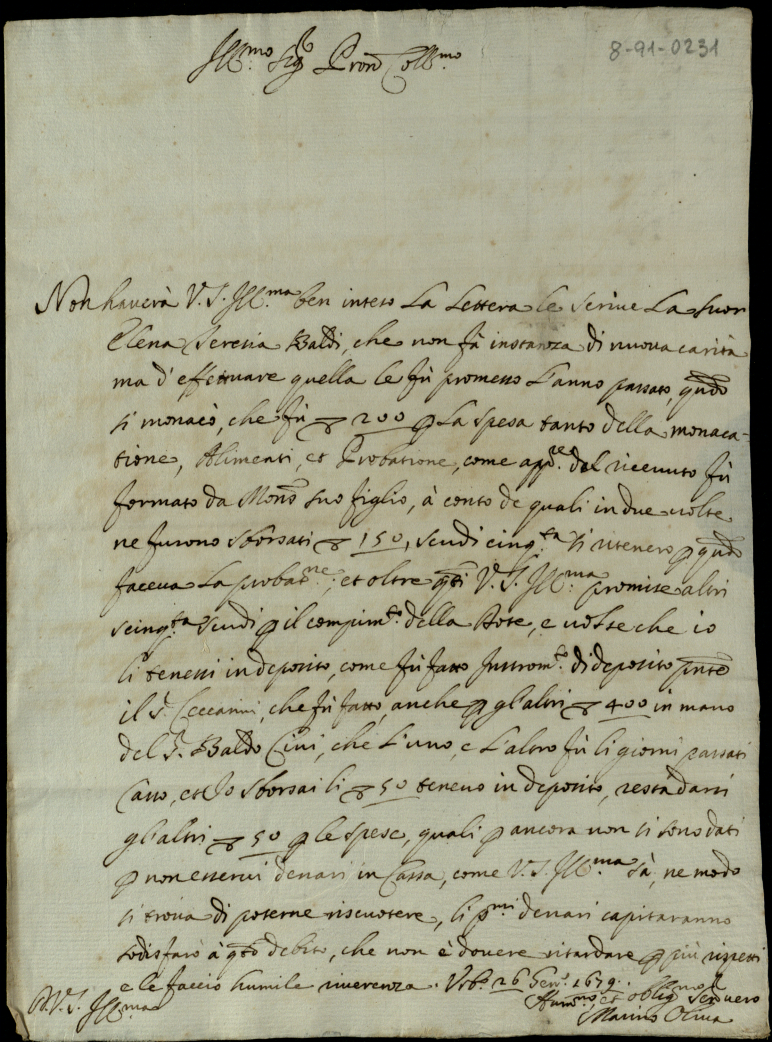 8-91-0231
Ill.mo Sig.r Pron Coll.mo
Non haverà V. S. Ill.ma ben inteso La Lettera le scrive La suor
Elena Teresia Baldi, che non fà instanza di nuova carità
ma d'effettuare quella le fù promesso L'anno passato, qndo
si monacò, che fù 200 p La spesa tanto della monaca=
tione, Alimenti, et Probatione, come app.re dal ricevuto fù
formato da Mons suo figlio, à conto de quali in due volte
ne furono sborsati 150, scudi cinq.ta si ritenero p qndo
faceva La probat.ne, et oltre qsti V. S. Ill.ma promise altri
scinq.ta scudi p il compim.to della Dote, e volse che io
li tenessi in deposito, come fù fatto Instrom.to di deposito pnte
il S. Ceccarini, che fù fatto, anche p gl'altri 400 in mano
del S. Baldo Cini, che L'uno, e L'altro fù li giorni passati
Casso, et Io sborsai li 50 tenevo in deposito, resta darsi
gl'altri 50 p le spese, quali p ancora non si sono dati
p non esservi denari in Cassa, come V. S. Ill.ma sà, ne modo
si trova di poterne riscuotere, li p.mi denari capitaranno
sodisfarò à qsto debito, che non è dovere ritardare p più rispetti
e le faccio humile riverenza. Urb.o 26 Gen.o 1679.
D. V. S. Ill.ma
Hum.mo, et oblig.mo Ser vero
Marino Oliva